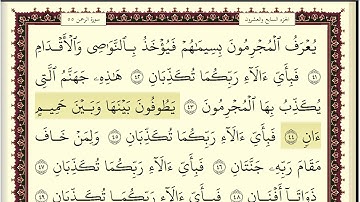 الجزء السابع والعشرون سورة الرحمن ٥٥
يُعْرَفُ ٱلْمُجْرِمُونَ بِسِيمَٰهُمْ فَيُؤْخَذُ بِٱلنَّوَٰصِى وَٱلْأَقْدَامِ
٤١ فَبِأَىِّ ءَالَآءِ رَبِّكُمَا تُكَذِّبَانِ ٤٢ هَٰذِهِۦ جَهَنَّمُ ٱلَّتِى
يُكَذِّبُ بِهَا ٱلْمُجْرِمُونَ ٤٣ يَطُوفُونَ بَيْنَهَا وَبَيْنَ حَمِيمٍ
ءَانٍ ٤٤ فَبِأَىِّ ءَالَآءِ رَبِّكُمَا تُكَذِّبَانِ ٤٥ وَلِمَنْ خَافَ
مَقَامَ رَبِّهِۦ جَنَّتَانِ ٤٦ فَبِأَىِّ ءَالَآءِ رَبِّكُمَا تُكَذِّبَانِ ٤٧
ذَوَاتَآ أَفْنَانٍ ٤٨ فَبِأَىِّ ءَالَآءِ رَبِّكُمَا تُكَذِّبَانِ ٤٩